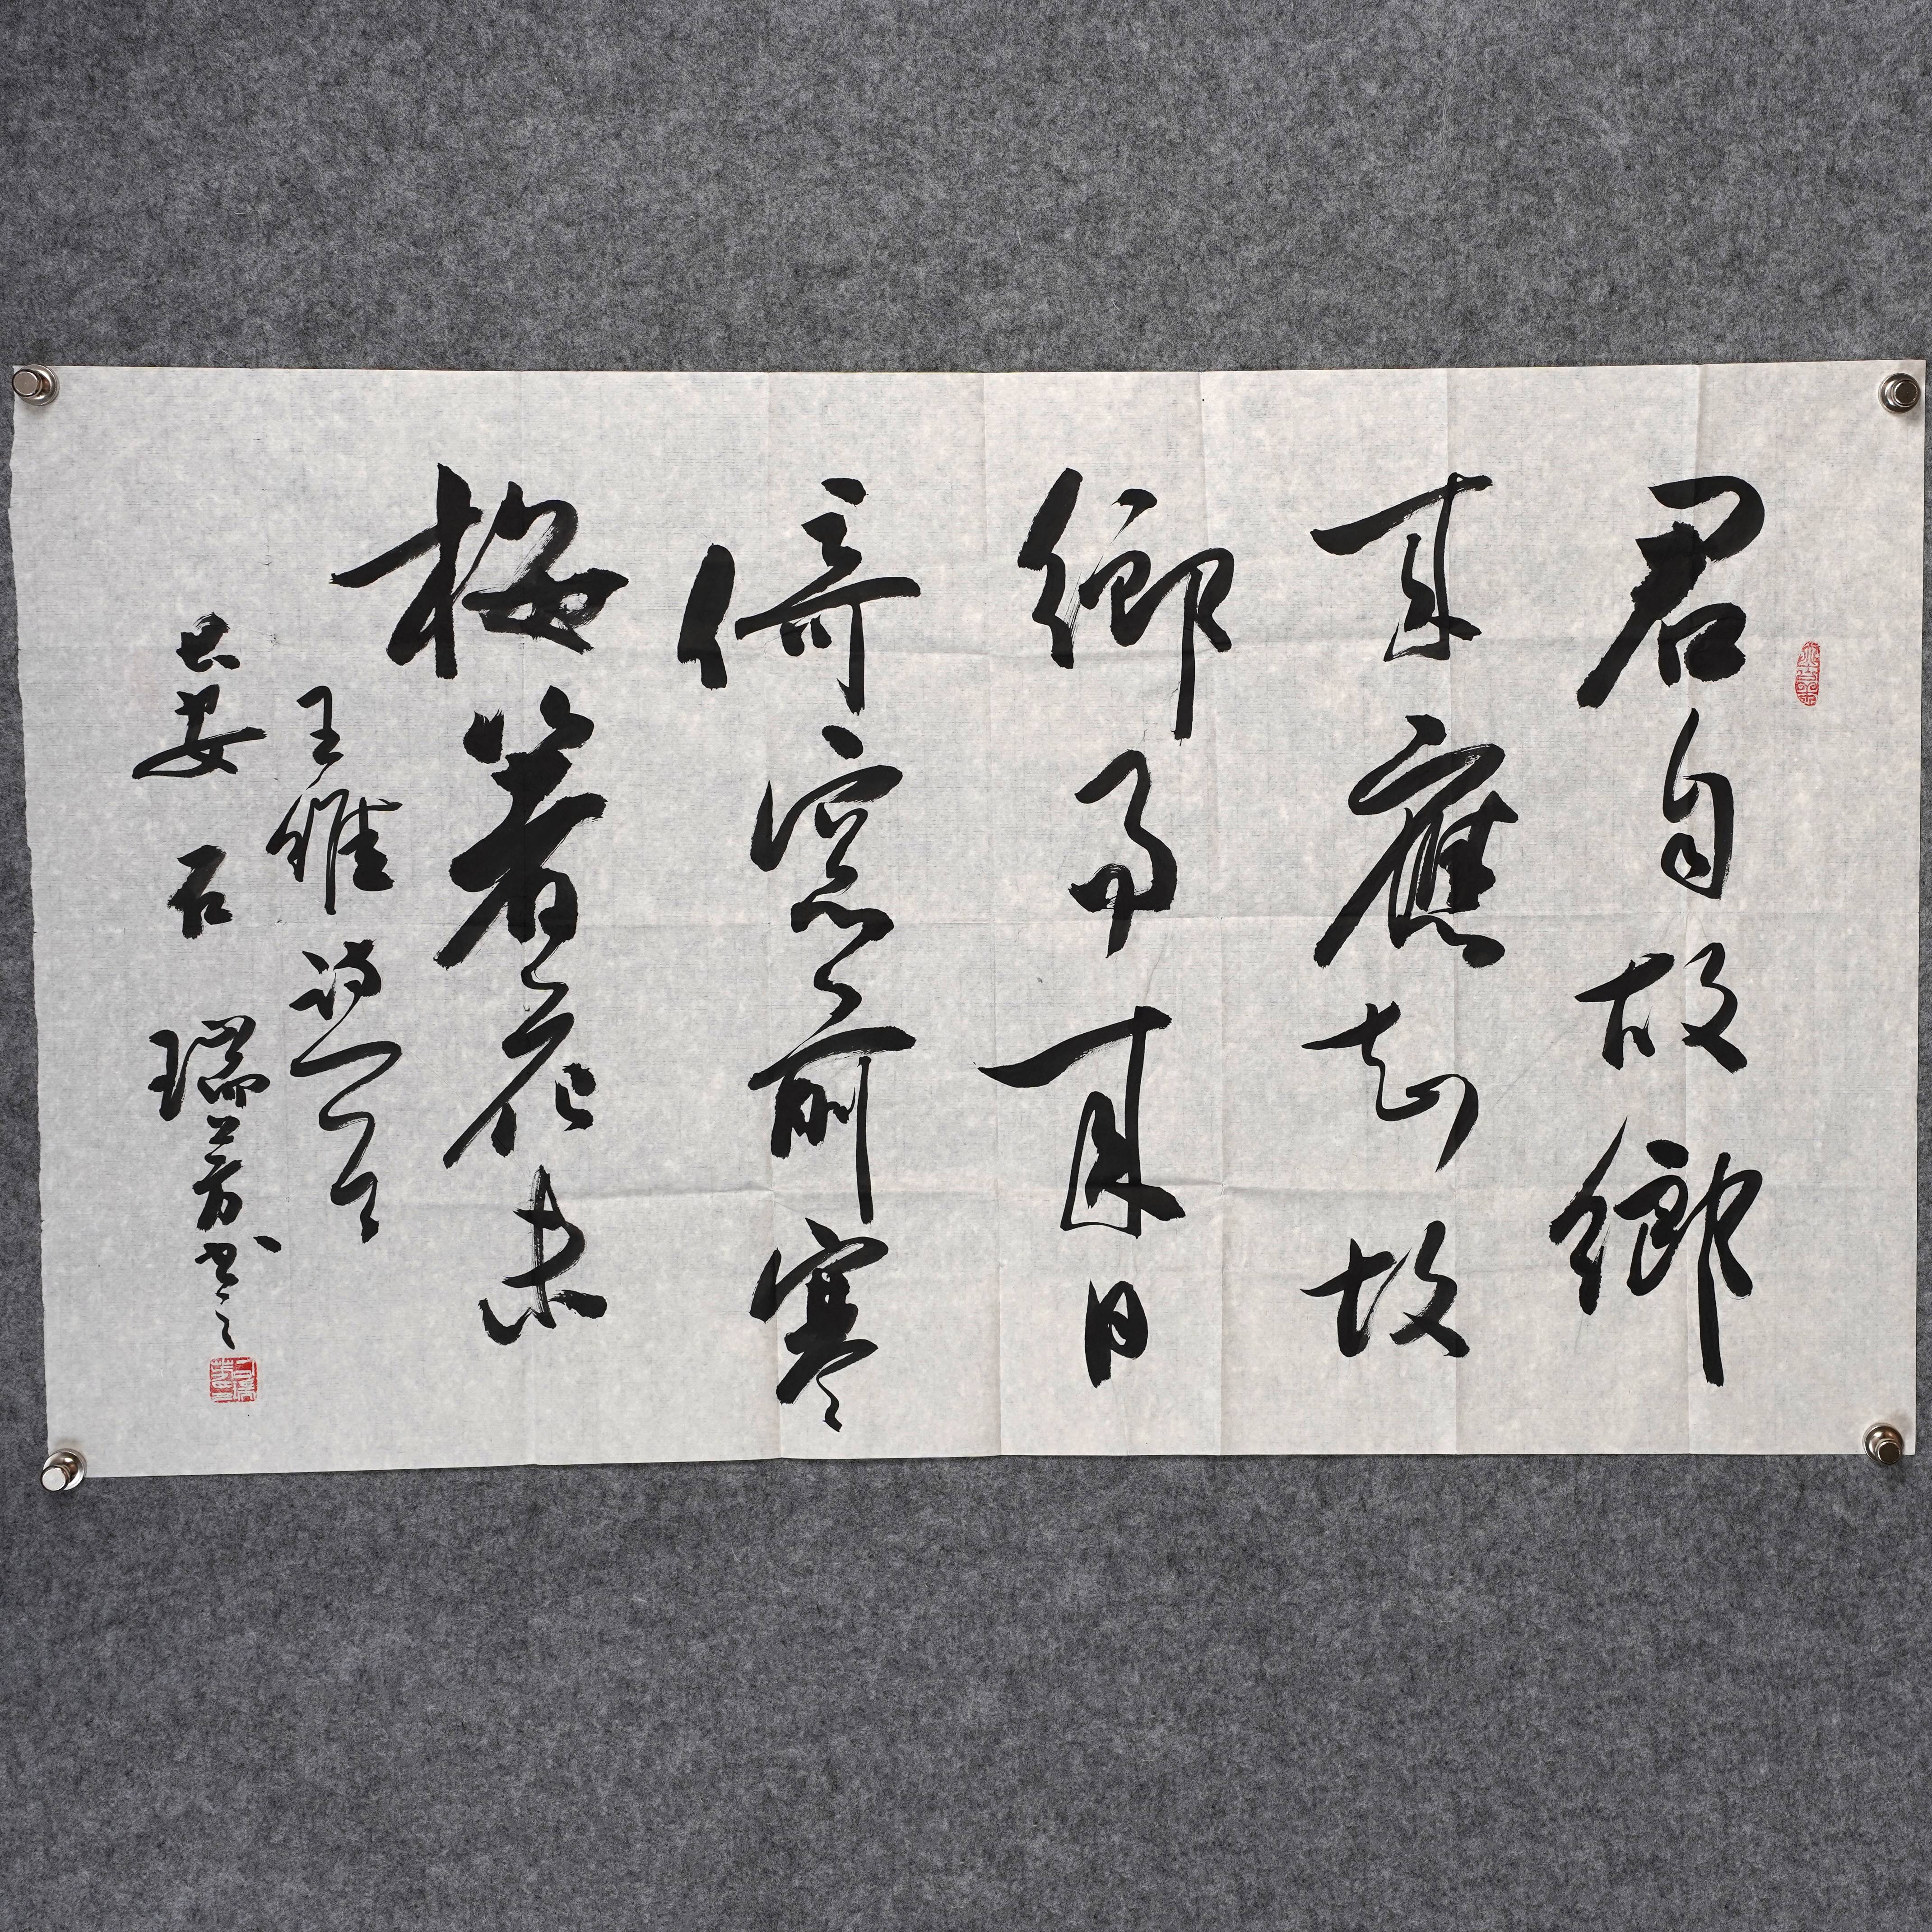 君自故鄉
來應知故
鄉事來日
倚窻前寒
梅著花未
王維詩一首
長安石瑞芳书之